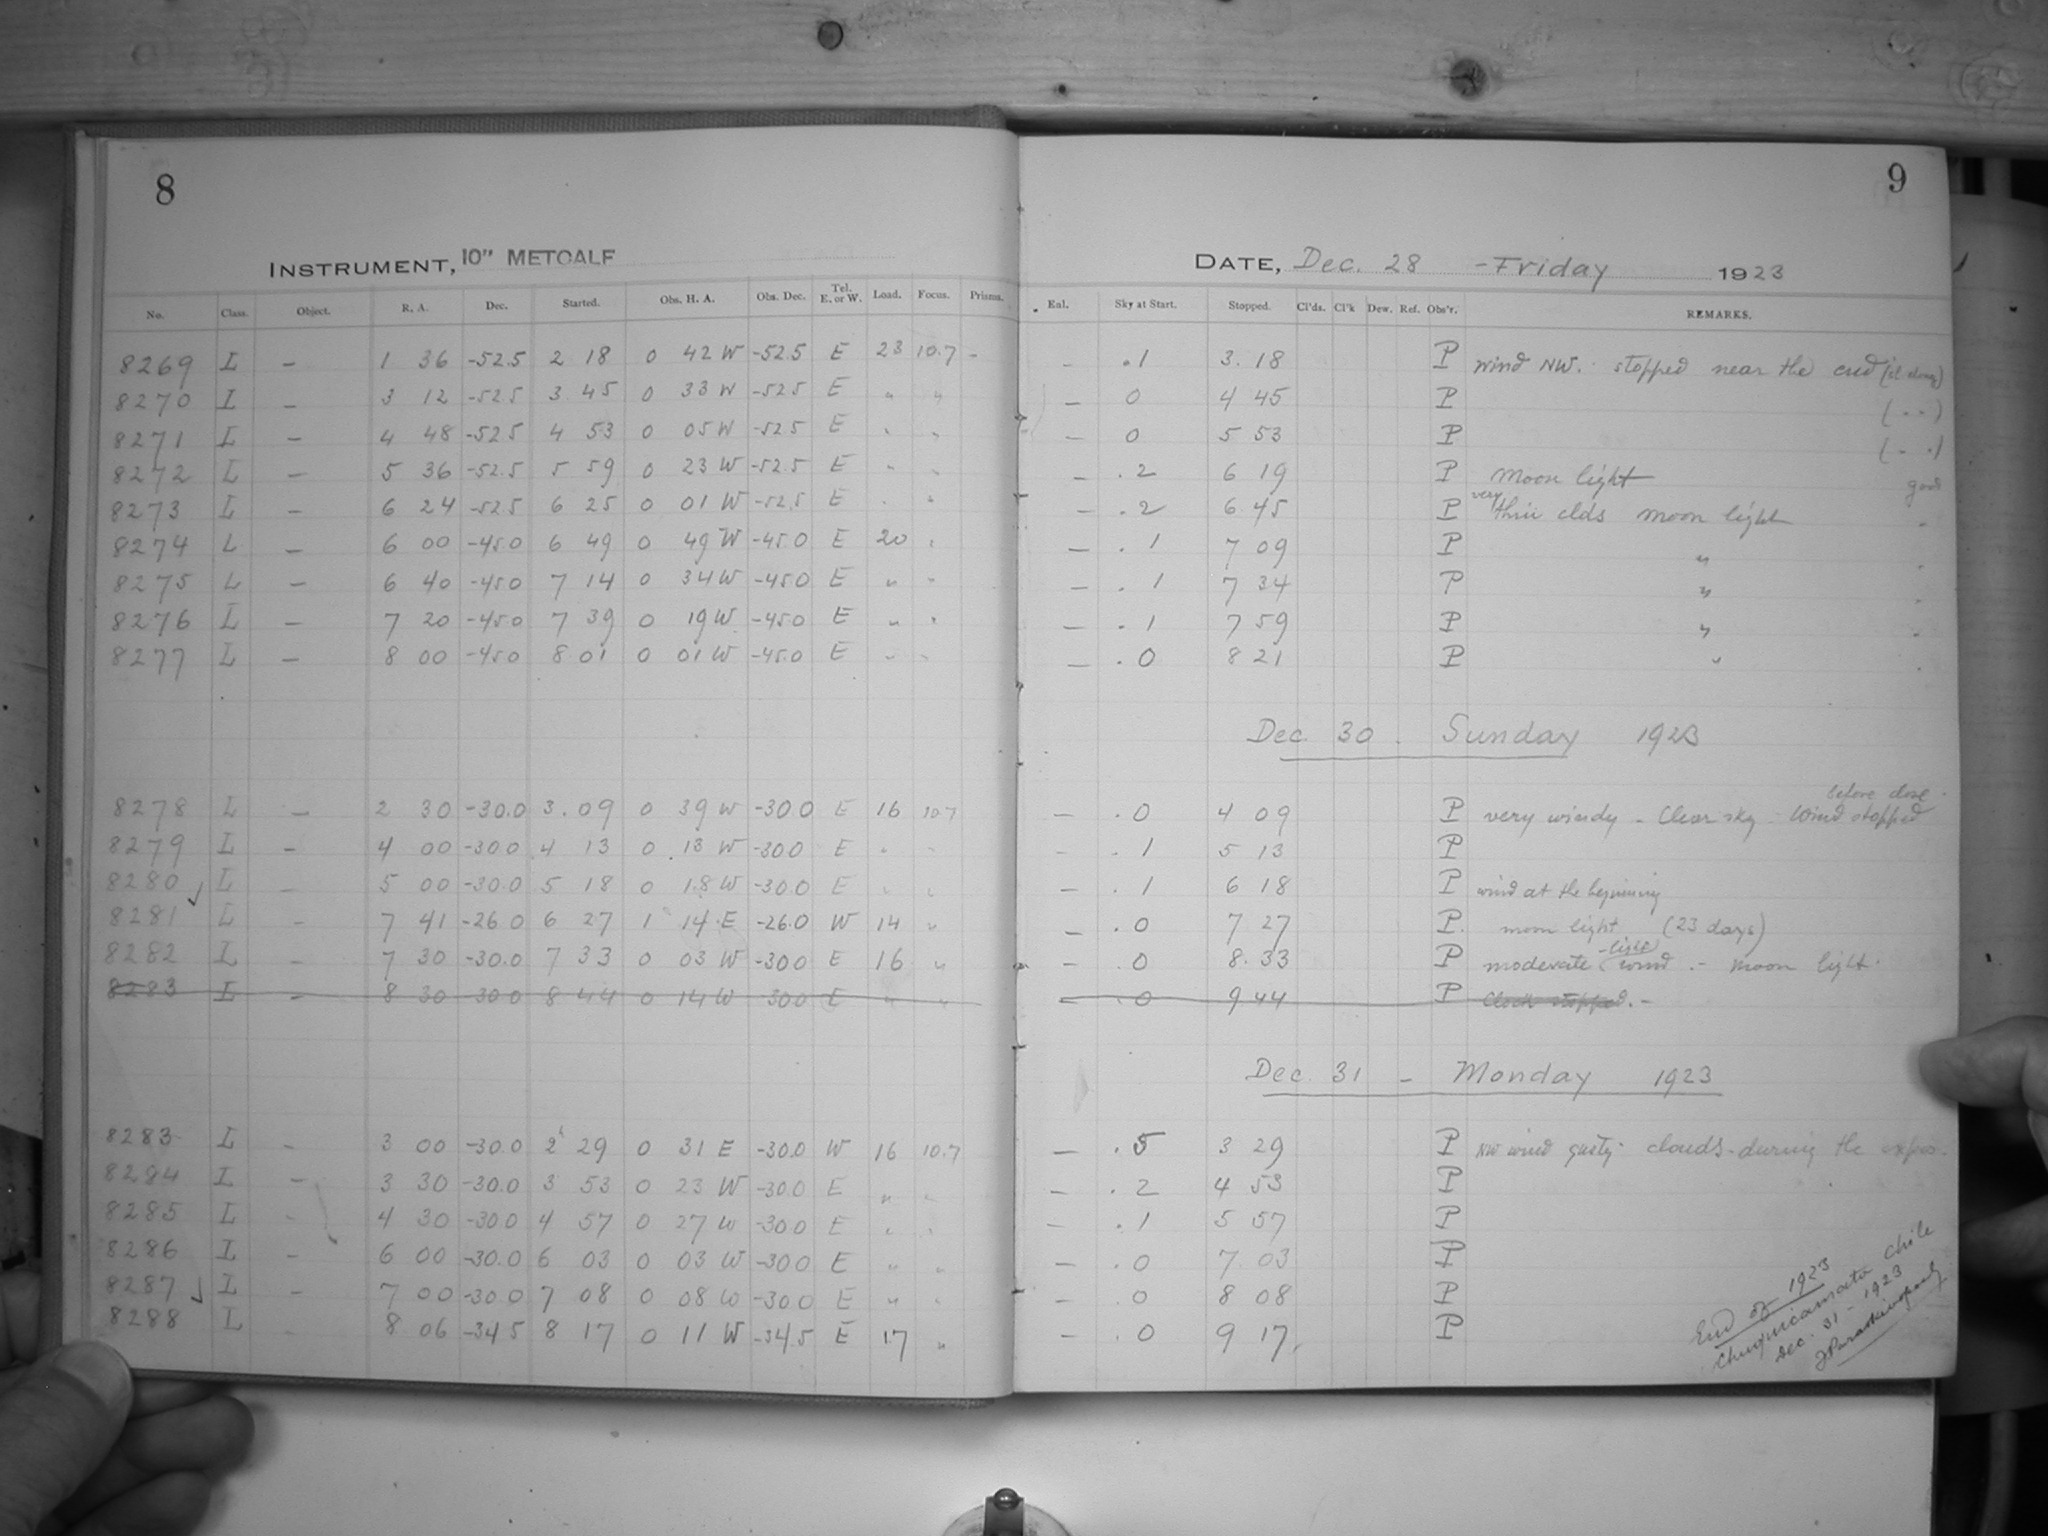 8
INSTRUMENT, 10" METCALF
No. Class. Object. R. A. Dec. Started. Obs. H. A. Obs. Dec. Tel. E. or W. Load. Focus. Prisms.
8269 L – 1 36 -52.5 2 18 0 42 W -52.5 E 23 10.7 -
8270 L – 3 12 -52.5 3 45 0 33 W -52.5 E " "
8271 L – 4 48 -52.5 4 53 0 05 W -52.5 E " "
8272 L – 5 36 -52.5 5 59 0 23 W -52.5 E " "
8273 L – 6 24 -52.5 6 25 0 01 W -52.5 E " "
8274 L – 6 00 -45.0 6 49 0 49 W -45.0 E 20 "
8275 L – 6 40 -45.0 7 14 0 34 W -45.0 E " "
8276 L – 7 20 -45.0 7 39 0 19 W -45.0 E " "
8277 L – 8 00 -45.0 8 01 0 01 W -45.0 E " "
8278 L – 2 30 -30.0 3.09 0 39 W -30.0 E 16 10.7
8279 L – 4 00 -30.0 4 13 0 13 W -30.0 E " "
8280 L – 5 00 -30.0 5 18 0 18 W -30.0 E " "
8281 L – 7 41 -26.0 6 27 1 14 E -26.0 W 14 "
8282 L – 7 30 -30.0 7 33 0 03 W -30.0 E 16 "
8283 L – 8 30 -30.0 8 44 0 14 W -30.0 E " "
8283 L – 3 00 -30.0 2h 29 0 31 E -30.0 W 16 10.7
8284 L – 3 30 -30.0 3 53 0 23 W -30.0 E " "
8285 L – 4 30 -30.0 4 57 0 27 W -30.0 E " "
8286 L – 6 00 -30.0 6 03 0 03 W -30.0 E " "
8287 L – 7 00 -30.0 7 08 0 08 W -30.0 E " "
8288 L – 8 06 -34.5 8 17 0 11 W -34.5 E 17 "
9
DATE, Dec. 28 - Friday 1923
Eal. Sky at Start. Stopped. Cl'ds. Cl'k Dew. Ref. Obs'r. REMARKS.
– .1 3.18 P Wind NW. stopped near the end
– 0 4 45 P (" ")
– 0 5 53 P (" ")
– .2 6 19 P Moon light good
– .2 6 45 P very thin clds moon light "
– .1 7 09 P " "
– .1 7 34 P " "
– .1 7 59 P " "
– .0 8 21 P " "
Dec. 30. Sunday 1923
– .0 4 09 P very windy - Clear sky - Wind stopped before close.
– .1 5 13 P
– .1 6 18 P wind at the beginning
– .0 7 27 P. moon light (23 days)
– .0 8.33 P moderate light wind. – moon light.
– .0 9 44 P Clock stopped. –
Dec. 31 – Monday 1923
– .5 3 29 P NW wind gusty - clouds - during the
– .2 4 53 P
– .1 5 57 P
– .0 7.03 P
– .0 8 08 P
– .0 9 17. P
End of 1923
Chuquicamata Chile
Dec. 31 - 1923
J Paraskevopoulos